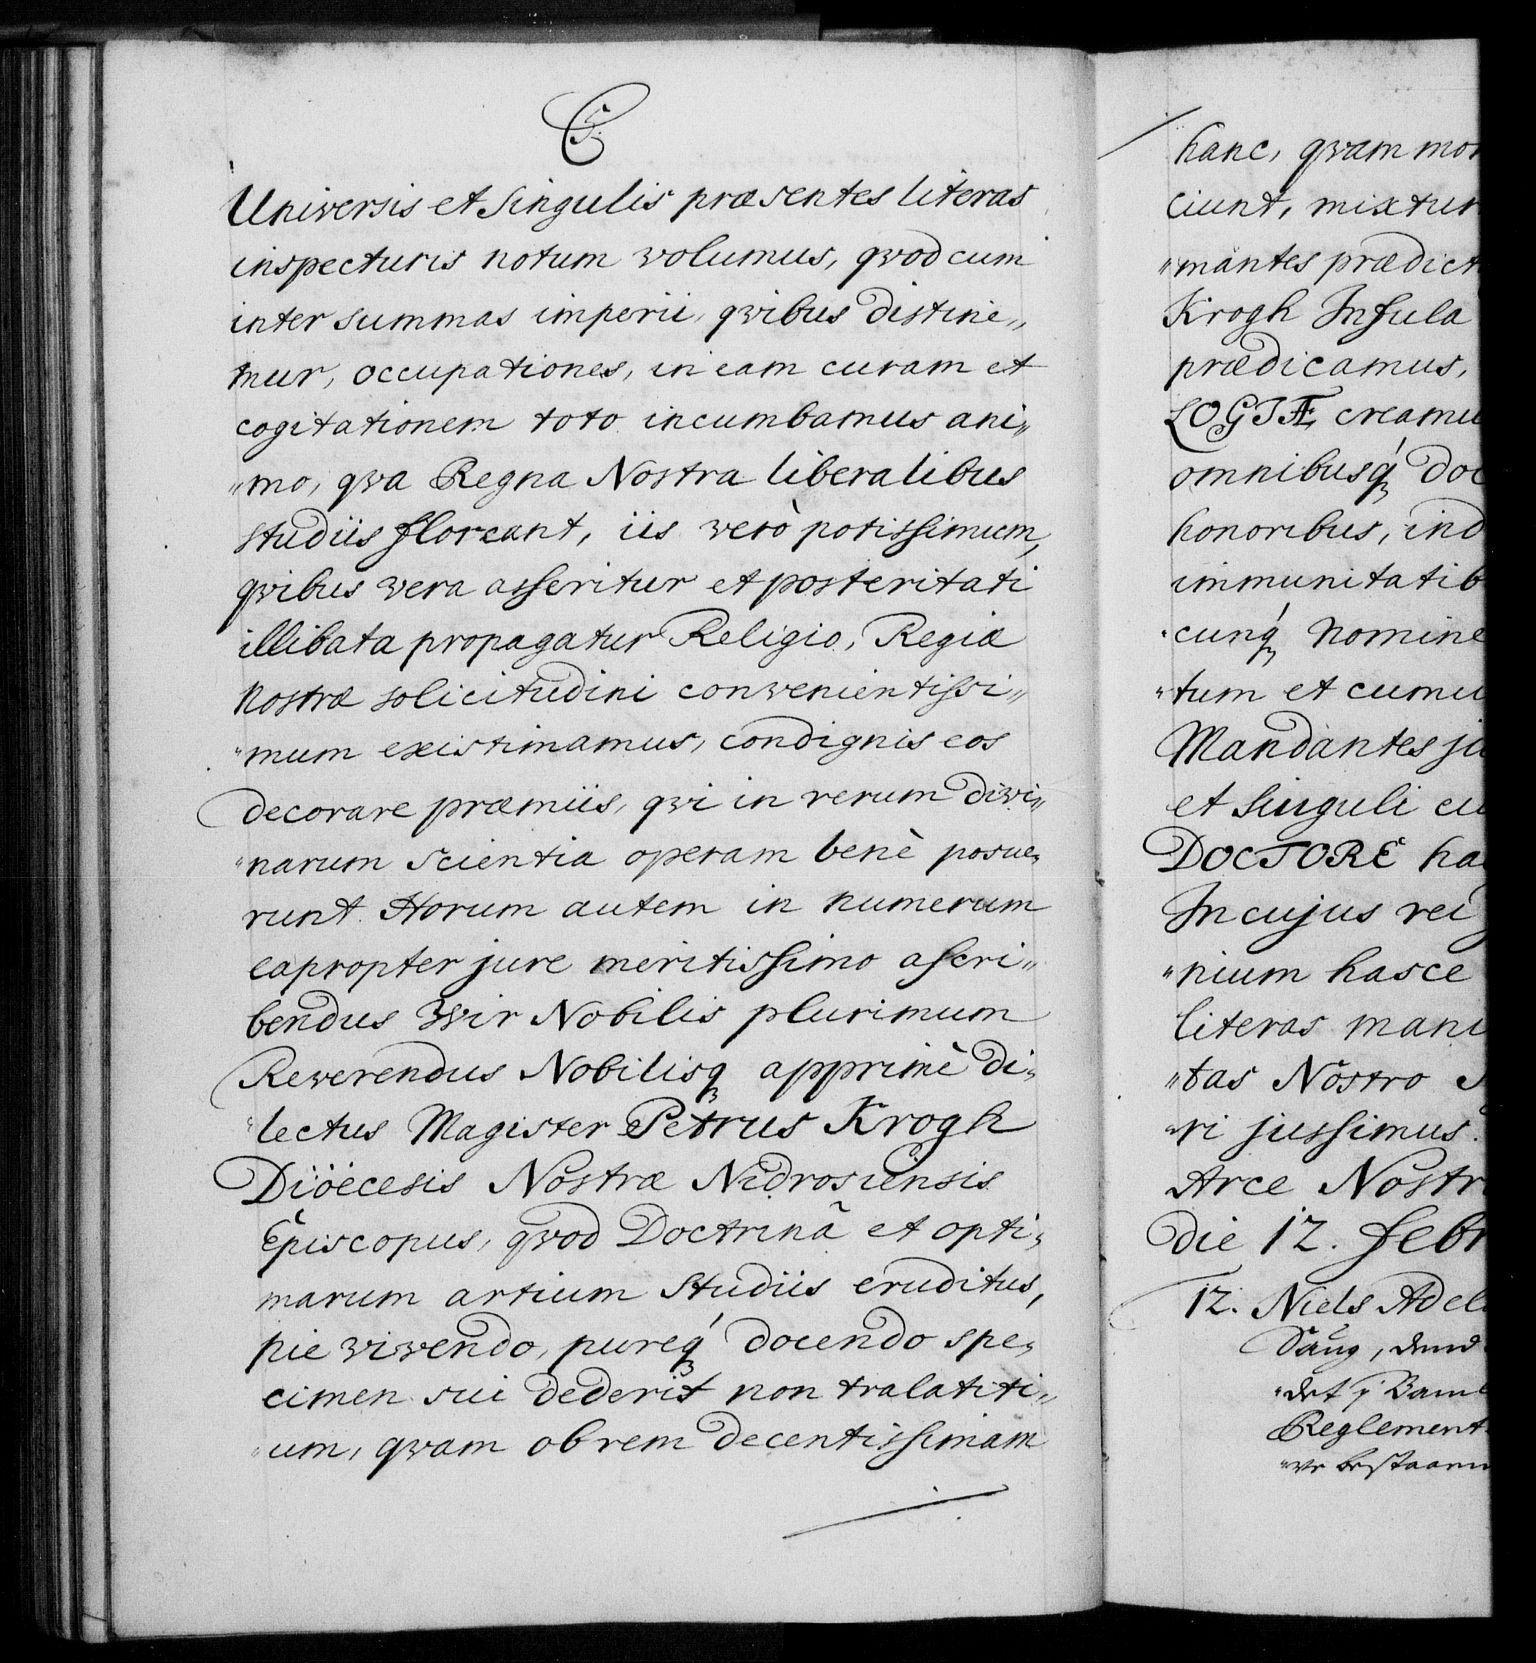 C5.
Universis et singulis præsentes literas
inspecturis notum volumus, qvod cum
inter summas imperii, qvibus distine„
mur, occupationes, in eam curam et
cogitationem toto incumbamus ani„
„mo, qva Regna Nostra liberalibus
studiis floreant, iis verò potissimum,
qvibus vera asseritur et posteritati
illibata propagatur Religio, Regiæ
Nostræ solicitudini convenientissi„
„mum existimamus, condignis eos
decorare præmiis, qvi in rerum divi„
„narum scientia operam benè posue„
runt. Horum autem in numerum
eapropter jure meritissimo ascri„
bendus Vir Nobilis plurimum
Reverendus Nobilisq apprimè di„
„lectus Magister Petrus Krogh
Diöecesis Nostræ Nidrosiensis
Episcopus, qvod Doctrinâ et opti„
marum artium studiis eruditus,
pie vivendo, pureq́ docendo spe„
cimen sui dederit non tralatiti„
„um, qvam obrem decentissimam
hanc, qvam mor
ciunt, mixtur
„mantes prædict
Krogh Insula
prædicamus,
LOGIÆ creamu
omnibusq́ doc
honoribus, ind
immunitatib
cunq́ nomine
„tum et cumu
Mandantes ju
et singuli cu
DOCTORE ha
In cujus rei
„nium hasce
literas manu
„tas Nostro S
„ri jussimus.
Arce Nostr
die 12. febr
12. Niels Adel
Reglement